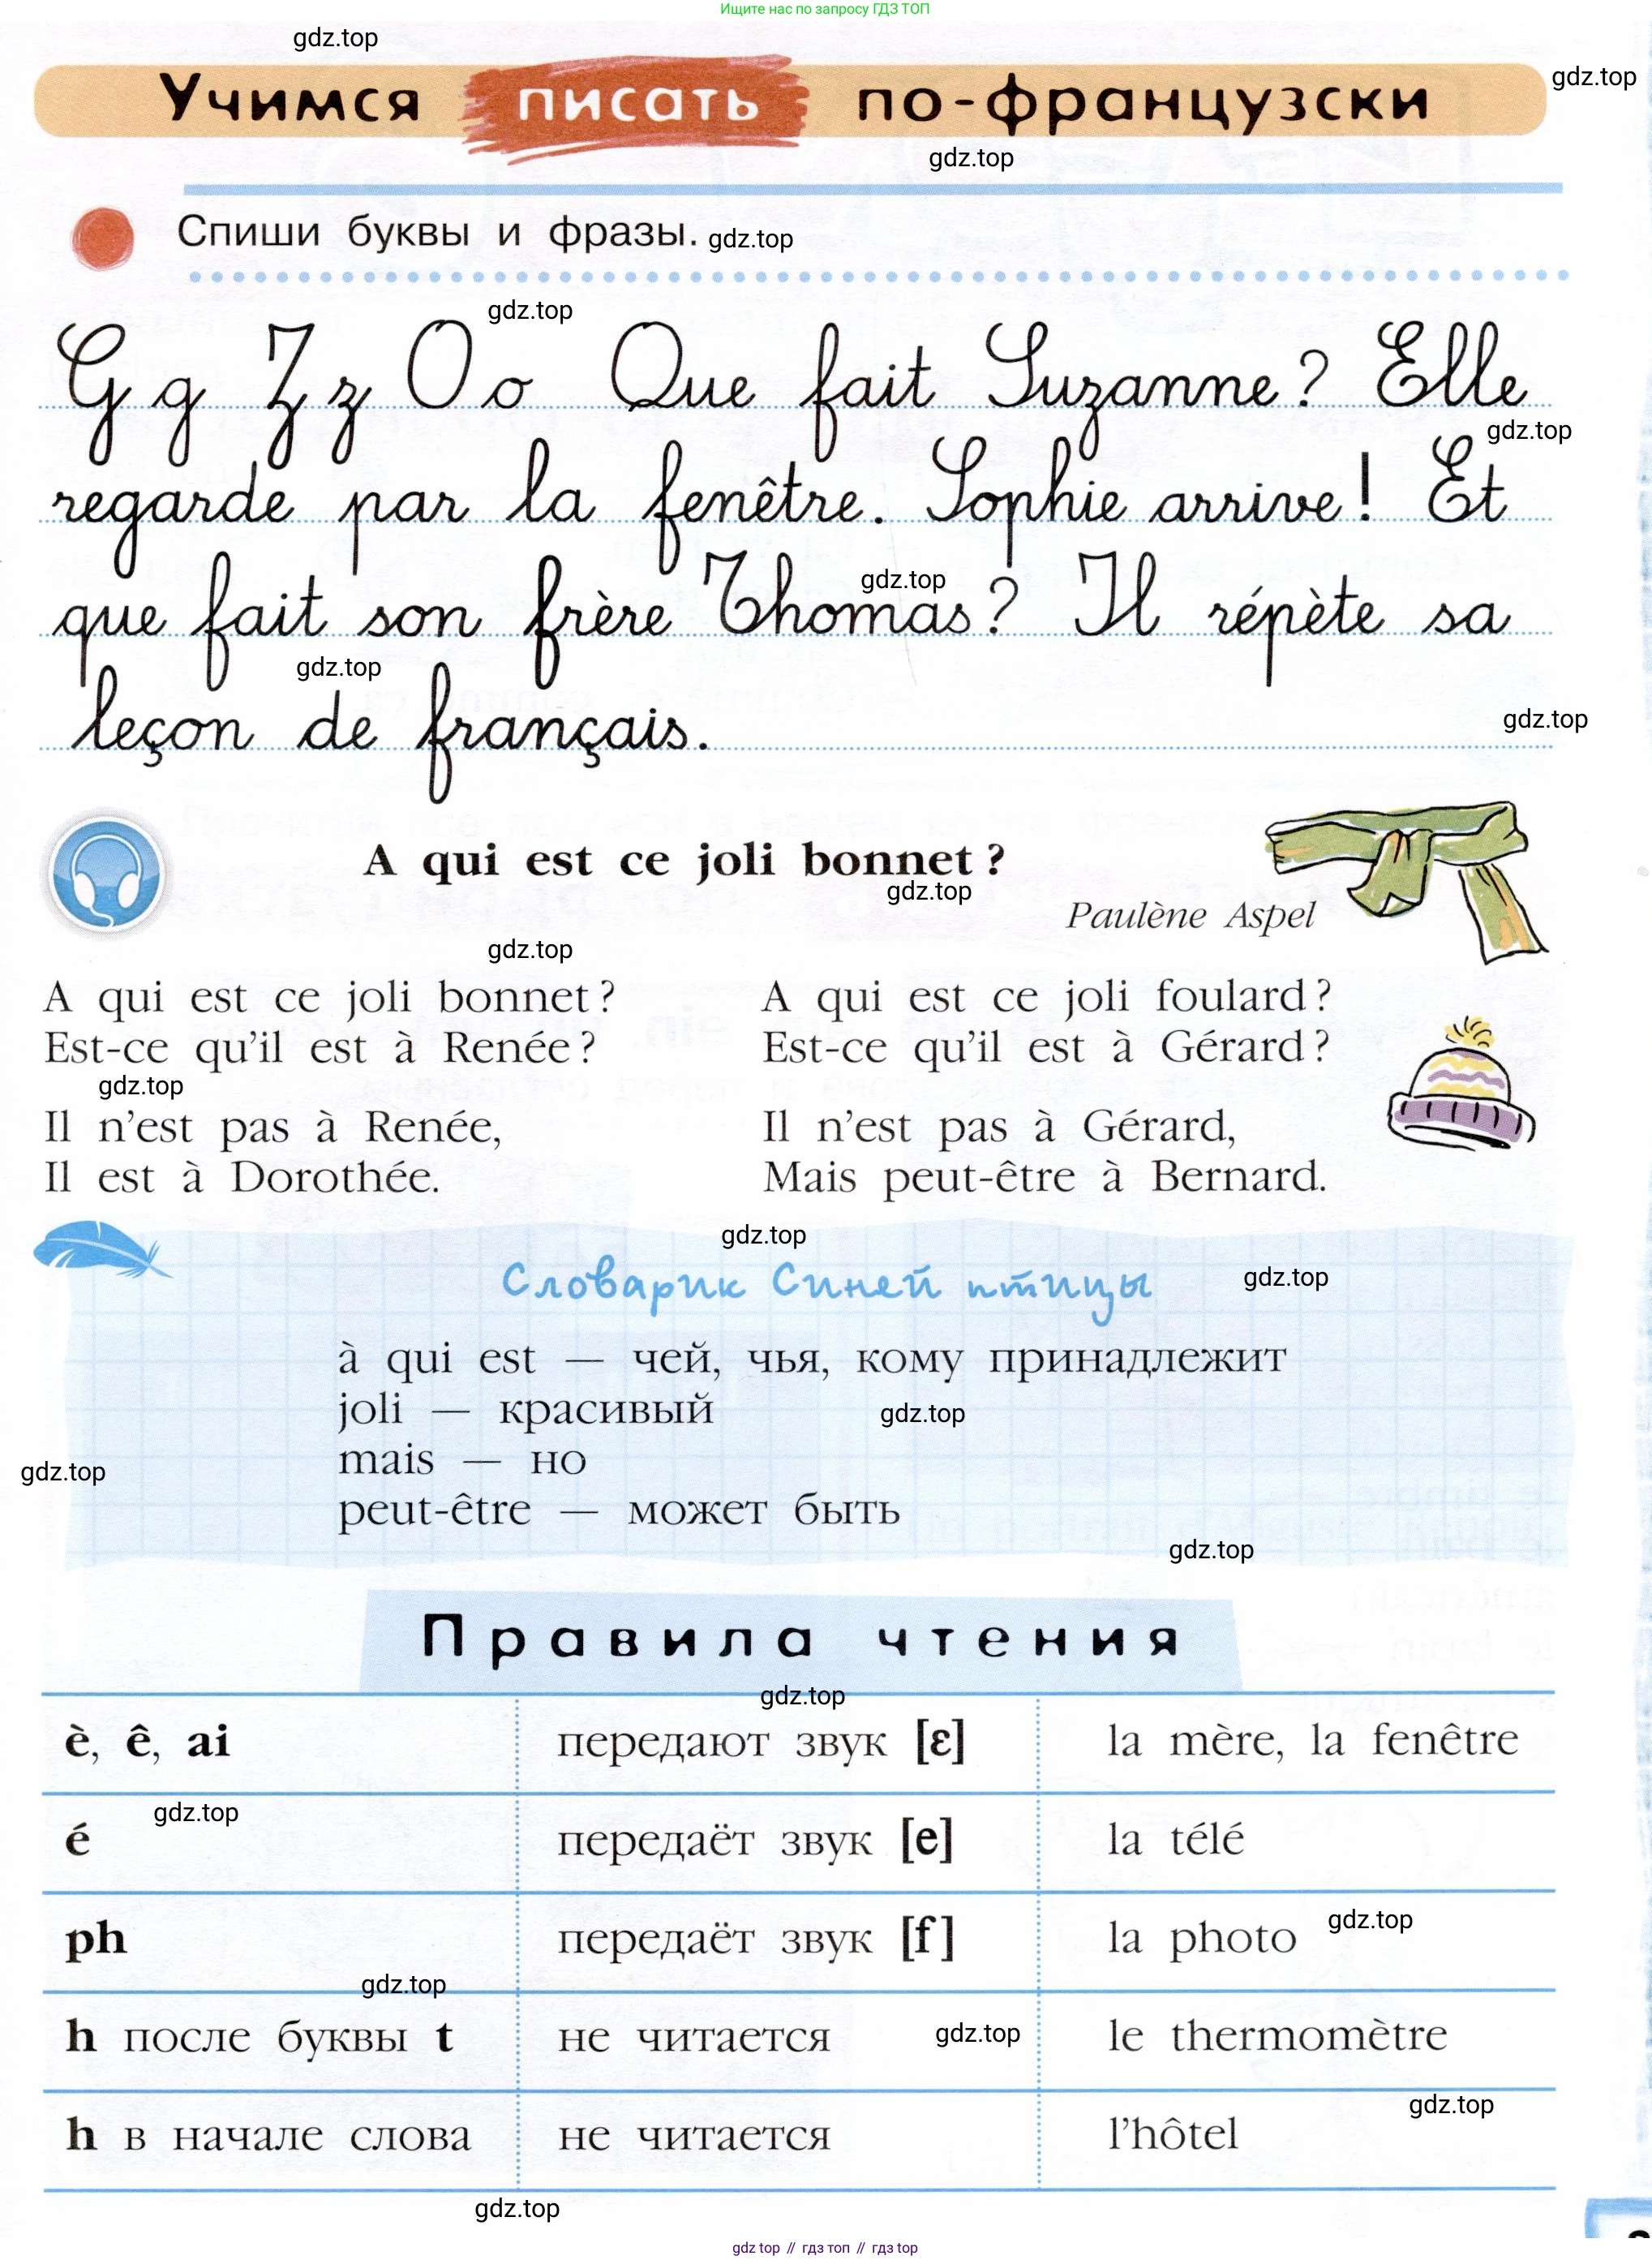 Ищите нас по запросу ГДЗ ТОП
gdz.top
Учимся писать по-французски
gdz.top
gdz.top
Спиши буквы и фразы. gdz.top
gdz.top
G g Z z O o Que fait Suzanne ? Elle
gdz.top
regarde par la fenêtre. Sophie arrive ! Et
gdz.top
que fait son frère Thomas ? Il répète sa
gdz.top
leçon de français.
gdz.top
A qui est ce joli bonnet ?
gdz.top
Paulène Aspel
gdz.top
A qui est ce joli bonnet ?
Est-ce qu'il est à Renée ?
gdz.top
Il n'est pas à Renée,
Il est à Dorothée.
A qui est ce joli foulard ?
Est-ce qu'il est à Gérard ?
Il n'est pas à Gérard,
Mais peut-être à Bernard.
gdz.top
Словарик Синей птицы
gdz.top
à qui est — чей, чья, кому принадлежит
joli — красивый
gdz.top
mais — но
gdz.top
peut-être — может быть
gdz.top
Правила чтения
gdz.top
è, ê, ai передают звук [ɛ] la mère, la fenêtre
gdz.top
é передаёт звук [e] la télé
ph передаёт звук [f] la photo
gdz.top
gdz.top
h после буквы t не читается le thermomètre
gdz.top
gdz.top
h в начале слова не читается l'hôtel
gdz.top
gdz top // гдз топ // гдз top